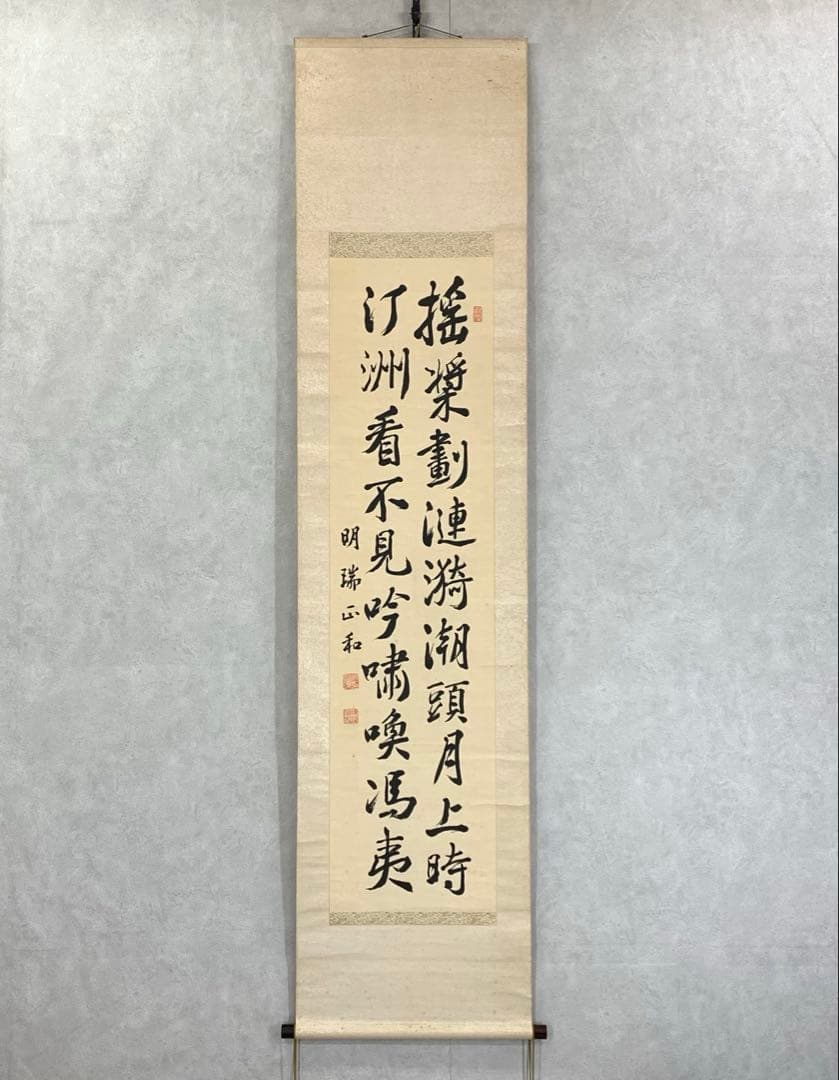 搖槳劃漣漪潮頭月上時
汀洲看不見吟嘯喚馮夷
明瑞正和